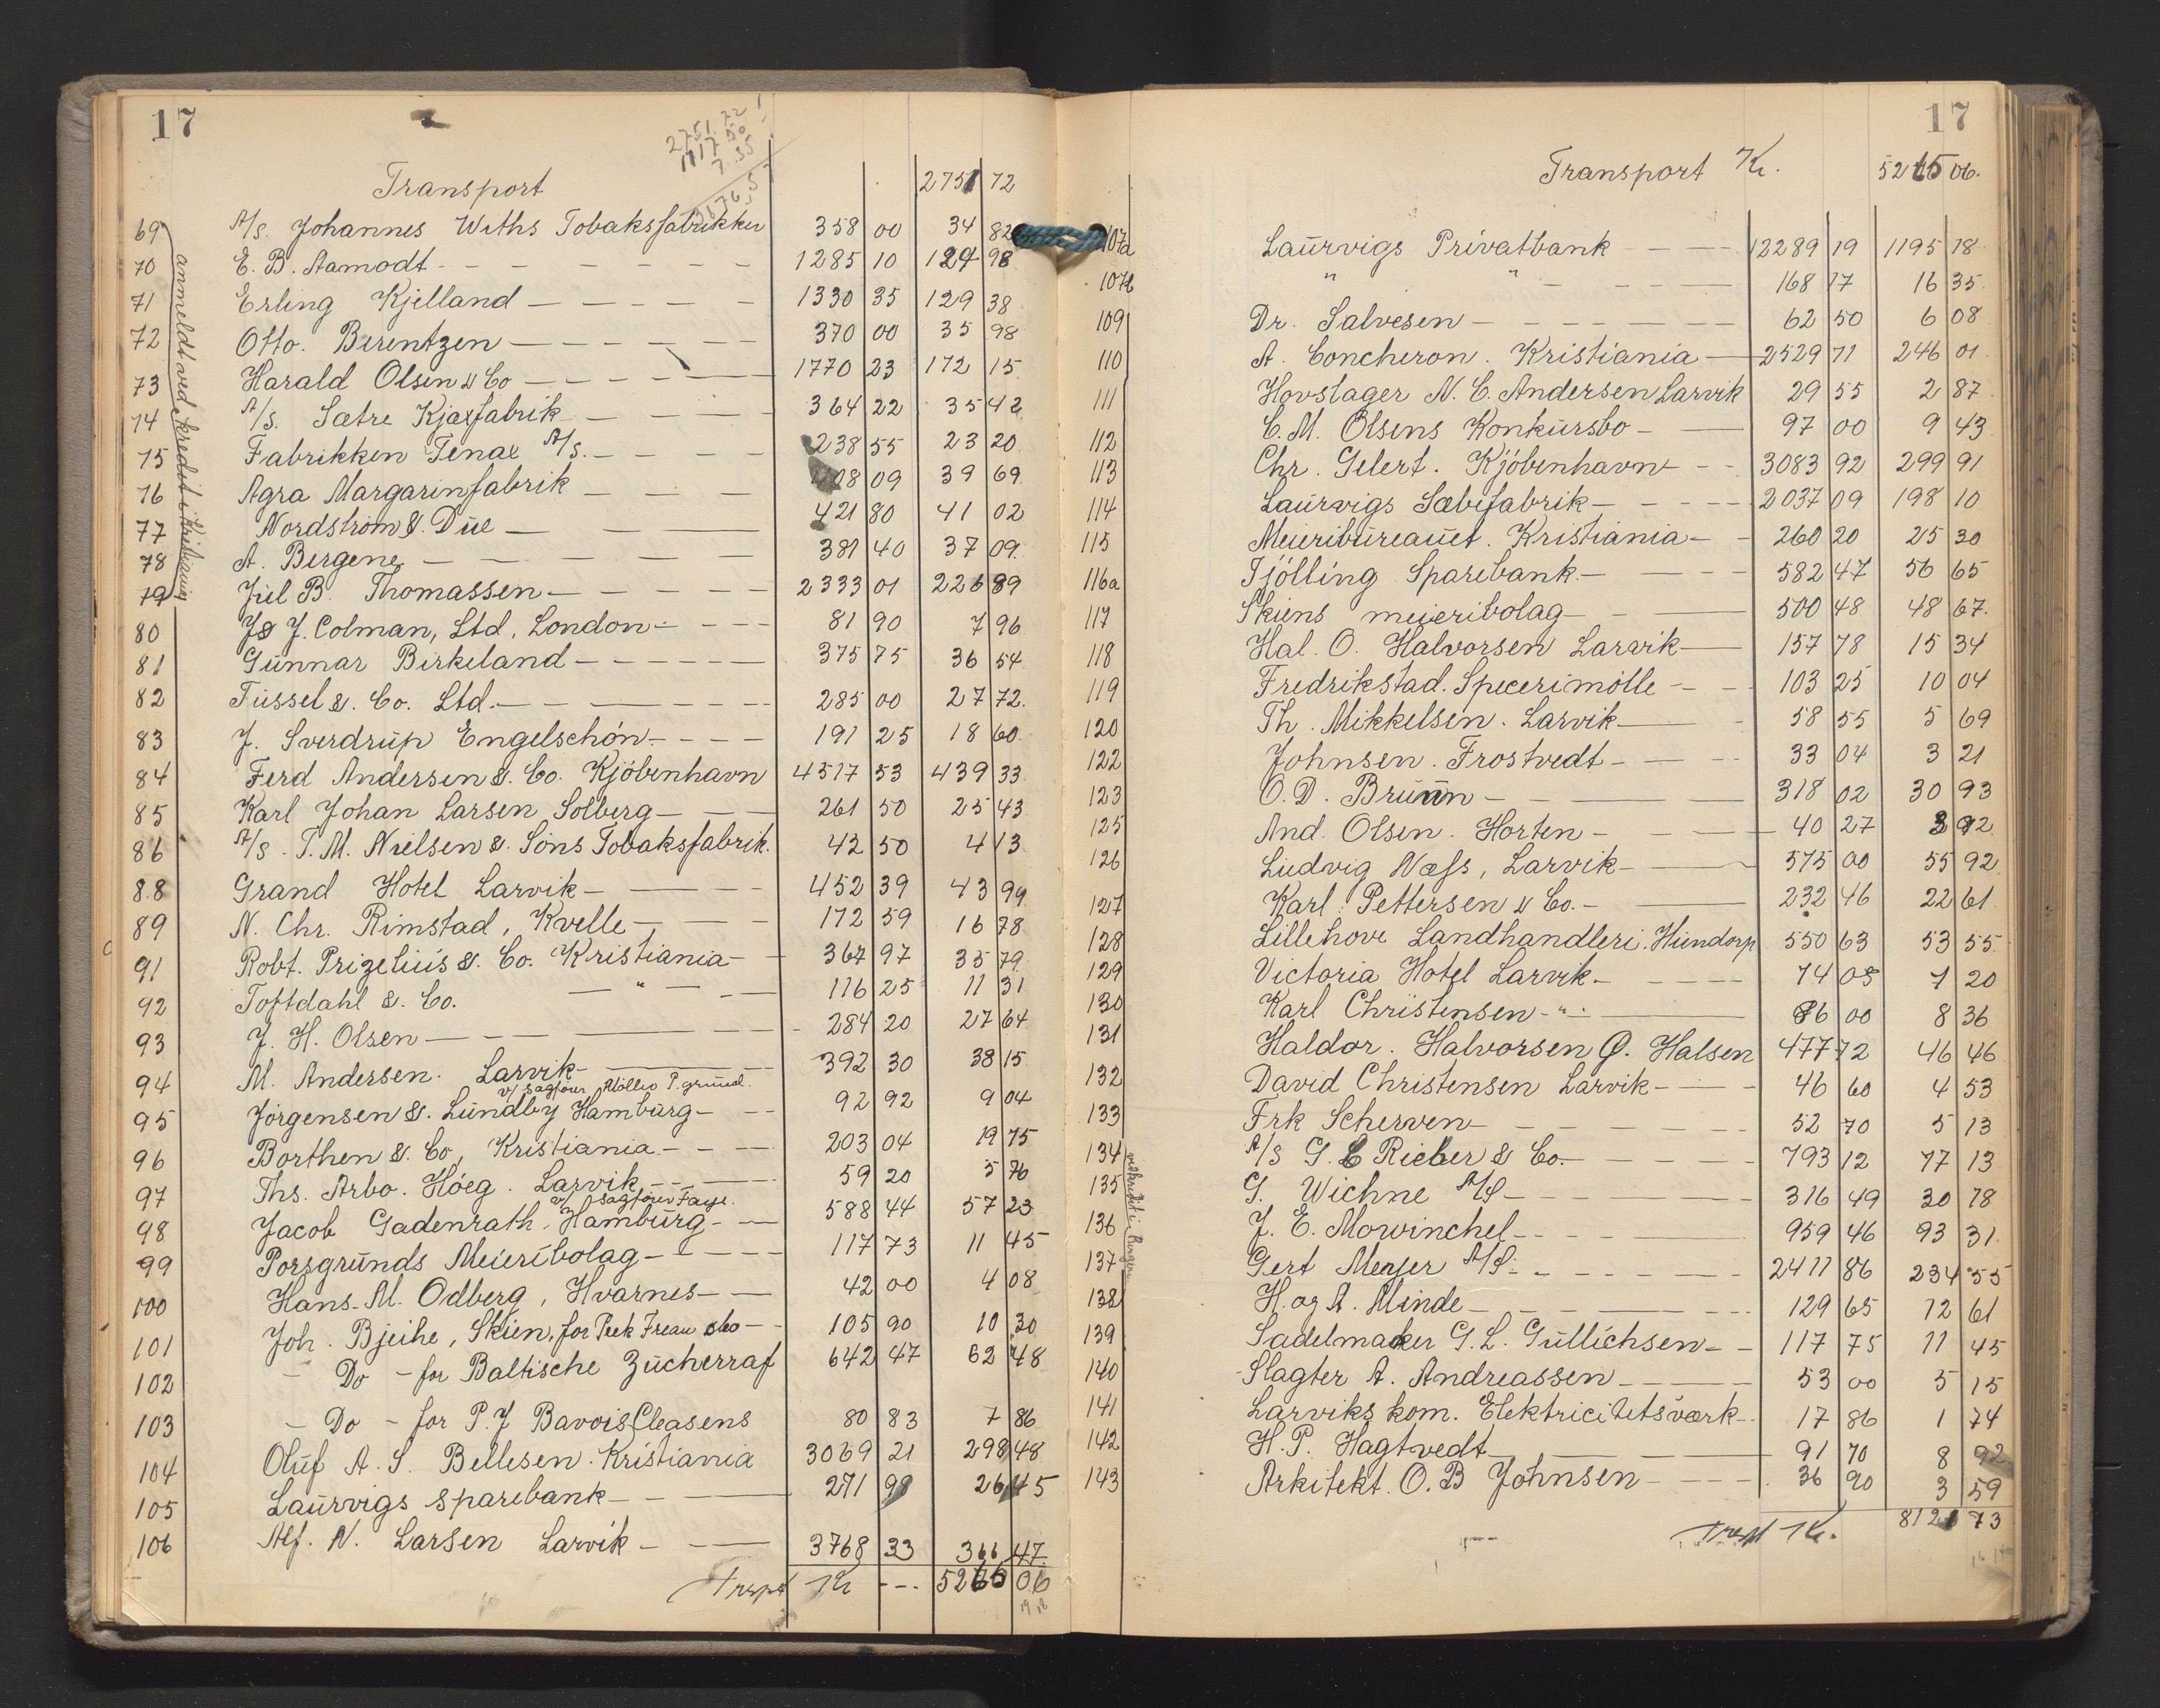 17
2751.72
1117.50
7.35
Transport 2751 72
69 A/S. Johannes Withs Tobaksfabrikker 358 00 34 82
70 E. B. Aamodt 1285 10 124 98
71 Erling Kjelland 1330 35 129 38
72 Otto. Berentzen 370 00 35 98
73 Harald Olsen & Co 1770 23 172 15
74 A/S. Sætre Kjæxfabrik 364 22 35 42
75 Fabrikken Tenax A/S. 238 55 23 20
76 Agra Margarinfabrik 408 09 39 69
77 Nordström &. Due 421 80 41 02
78 A. Bergene 381 40 37 09
79 Juel B. Thomassen 2333 01 226 89
anmeldt ved kredit i Kristiania
80 J & J. Colman, Ltd, London 81 90 7 96
81 Gunnar Birkeland 375 75 36 54
82 Tussel &. Co. Ltd. 285 00 27 72.
83 J. Sverdrup Engelschön 191 25 18 60
84 Ferd Andersen &. Co. Kjöbenhavn 4517 53 439 33
85 Karl Johan Larsen Solberg 261 50 25 43
86 A/S. T. M. Nielsen &. Söns Tobaksfabrik. 42 50 4 13
88 Grand Hotel Larvik 452 39 43 99
89 N. Chr. Rimstad, Kvelle 172 59 16 78
91 Robt. Prizelius &. Co. Kristiania 367 97 35 79
92 Toftdahl &. Co. " 116 25 11 31
93 J. H. Olsen 284 20 27 64
94 M. Andersen. Larvik 392 30 38 15
v/ Sagförer Möller P.grund.
95 Jörgensen &. Lundby Hamburg 92 92 9 04
96 Borthen &. Co, Kristiania 203 04 19 75
97 Ths. Arbo. Höeg. Larvik 59 20 5 76
v/ Sagförer Faye.
98 Jacob Gadenrath, Hamburg 588 44 57 23
99 Porsgrunds Meieribolag 117 73 11 45
100 Hans. M. Odberg, Hvarnes 42 00 4 08
101 Joh. Bjeihe, Skien, for Peek Frean &Co 105 90 10 30
102 Do - for Baltische Zücherraf 642 47 62 48
103 Do - for P. J Bavois Cleasens 80 83 7 86
104 Oluf A. S. Bellesen. Kristiania 3069 21 298 48
105 Laurvigs Sparebank 271 98 26 45
106 Alf. N. Larsen Larvik 3768 33 366 47
Trspt Kr 5265 06
17
Transport Kr. 5265 06.
107a Laurvigs Privatbank 12289 19 1195 18
107b " " 168 17 16 35
109 Dr. Salvesen 62 50 6 08
110 A. Concheron. Kristiania 2529 71 246 01
111 Hovslager N. C. Andersen Larvik 29 55 2 87
112 C. M. Olsens Konkursbo 97 00 9 43
113 Chr. Gelert. Kjöbenhavn 3083 92 299 91
114 Laurvigs Sæbefabrik 2037 09 198 10
115 Meieribureauet. Kristiania 260 20 25 30
116a Tjölling Sparebank. 582 47 56 65
117 Skiens meieribolag 500 48 48 67.
118 Hal. O. Halvorsen Larvik 157 78 15 34
119 Fredrikstad. Specerimölle 103 25 10 04
120 Th. Mikkelsen. Larvik 58 55 5 69
122 Johnsen. Frostvedt 33 04 3 21
123 O. D. Bruun 318 02 30 93
125 And. Olsen. Horten 40 27 3 92
126 Ludvig Næss, Larvik 575 00 55 92
127 Karl. Pettersen & Co. 232 46 22 61
128 Lillehove Landhandleri. Hundorp 550 63 53 55
129 Victoria Hotel Larvik 74 05 7 20
130 Karl Christensen " 86 00 8 36
131 Haldor. Halvorsen Ø. Halsen 477 72 46 46
132 David Christensen Larvik 46 60 4 53
133 Frk Scherven 52 70 5 13
134 A/S G. C Rieber & Co. 793 12 77 13
135 G. Wichne A/S 316 49 30 78
136 J. E. Mowinchel 959 46 93 31
137 Gert Meyer A/S 2411 86 234 55
138 H. og A. Minde 129 65 12 61
139 Sadelmaker G. L. Gullichsen 117 75 11 45
140 Slagter A. Andreassen 53 00 5 15
141 Larviks kom. Elektricitetsværk 17 86 1 74
142 H. P. Hagtvedt 91 70 8 92
143 Arkitekt. O. B Johnsen 36 90 3 59
Trspt Kr. 8121 73